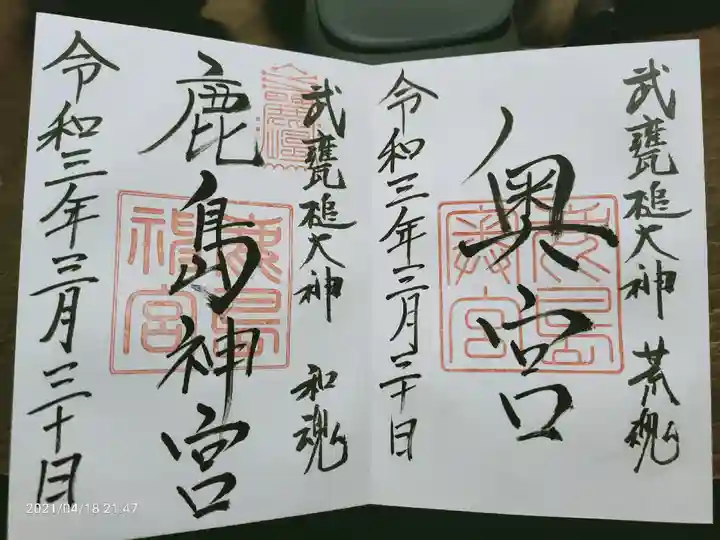 武甕槌大神 荒魂
奥宮
令和三年三月三十日
武甕槌大神 和魂
鹿島神宮
令和三年三月三十日
鹿島神宮
2021/04/18 21:47